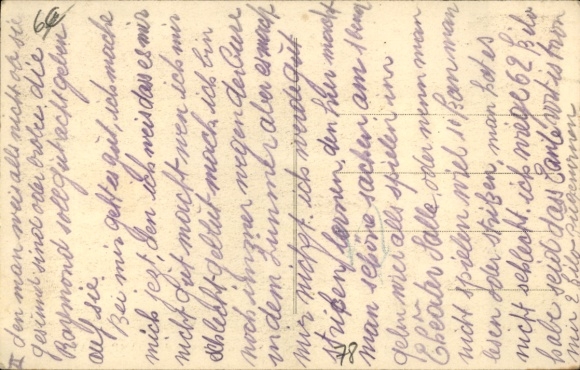 6€
II
den man weis alle nicht ob sie
gesund sind oder oder die
Raymond soll gut acht geben
auf sie.
Bei mir geht es gut, ich mache
mich jezt, den ich weis das es mir
nicht gut macht wen ich mir
schlecht geltut mach, ich bin
noch immer wegen der Cure
in dem Zimmer aber es macht
mir nichts. ich werde gut
stricken lernen, den hier macht
man schöne sachen, am 1 Uhr
gehn wier als spielen in
Theater Halle oder wenn man
nicht spielen wiel so kan man
lesen oder sitzen, man hat es
nicht schlecht, ich wiege 62 kilo
habe seid das Tante fort ist von
mir 2 kilo
78